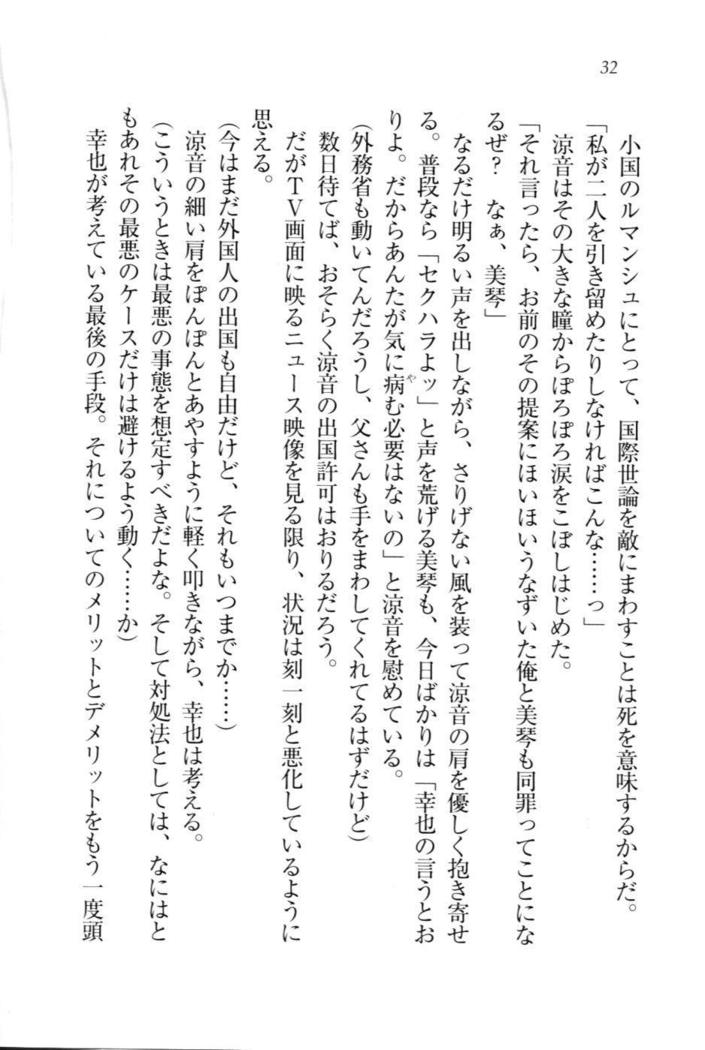 32
小国のルマンシュにとって、国際世論を敵にまわすことは死を意味するからだ。
「私が二人を引き留めたりしなければこんな……っ」
涼音はその大きな瞳からぽろぽろ涙をこぼしはじめた。
「それ言ったら、お前のその提案にほいほいうなずいた俺と美琴も同罪ってことにな
るぜ？　なぁ、美琴」
なるだけ明るい声を出しながら、さりげない風を装って涼音の肩を優しく抱き寄せ
る。普段なら「セクハラよッ」と声を荒げる美琴も、今日ばかりは「幸也の言うとお
りよ。だからあんたが気に病む必要はないの」と涼音を慰めている。
や
（外務省も動いてんだろうし、父さんも手をまわしてくれてるはずだけど）
数日待てば、おそらく涼音の出国許可はおりるだろう。
だがＴＶ画面に映るニュース映像を見る限り、状況は刻一刻と悪化しているように
思える。
（今はまだ外国人の出国も自由だけど、それもいつまでか……）
涼音の細い肩をぽんぽんとあやすように軽く叩きながら、幸也は考える。
（こういうときは最悪の事態を想定すべきだよな。そして対処法としては、なにはと
もあれその最悪のケースだけは避けるよう動く……か）
幸也が考えている最後の手段。それについてのメリットとデメリットをもう一度頭